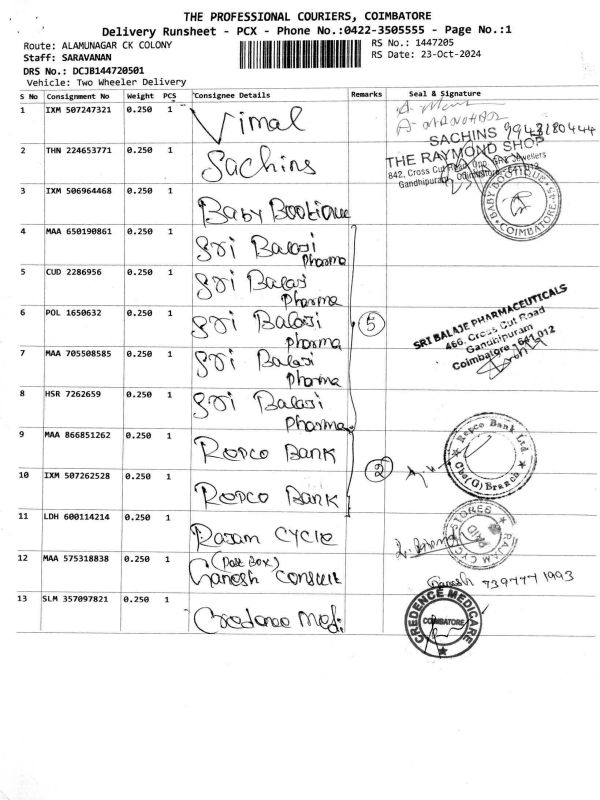 THE PROFESSIONAL COURIERS, COIMBATORE
Delivery Runsheet - PCX - Phone No.:0422-3505555 - Page No.:1
Route: ALAMUNAGAR CK COLONY
RS No.: 1447205
Staff: SARAVANAN
RS Date: 23-Oct-2024
DRS No.: DCJB144720501
Vehicle: Two Wheeler Delivery
S No Consignment No Weight PCS Consignee Details Remarks Seal & Signature
1 IXM 507247321 0.250 1 Vimal
A. MANOHAR
9943180444
2 THN 224653771 0.250 1 Sachins
SACHINS
THE RAYMOND SHOP
842, Cross Cut Road, Opp. Jewellers
Gandhipuram, Coimbatore - 641 012
3 IXM 506964468 0.250 1 Baby Bootique
BABY BOOTIQUE
COIMBATORE
4 MAA 650190861 0.250 1 Sri Balaji Pharma
5 CUD 2286956 0.250 1 Sri Balaji Pharma
6 POL 1650632 0.250 1 Sri Balaji Pharma
5
SRI BALAJE PHARMACEUTICALS
466, Cross Cut Road
Gandhipuram
Coimbatore - 641 012
7 MAA 705508585 0.250 1 Sri Balaji Pharma
8 HSR 7262659 0.250 1 Sri Balaji Pharma
9 MAA 866851262 0.250 1 Repco Bank
2
Repco Bank Ltd.
Cbe(G) Branch
10 IXM 507262528 0.250 1 Repco Bank
11 LDH 600114214 0.250 1 Rajam Cycle
RAJAM CYCLE STORES
12 MAA 575318838 0.250 1 (Post Box) Ganesh Consult
Ganesh 7397771993
13 SLM 357097821 0.250 1 Credence Medi
CREDENCE MEDICARE
COIMBATORE